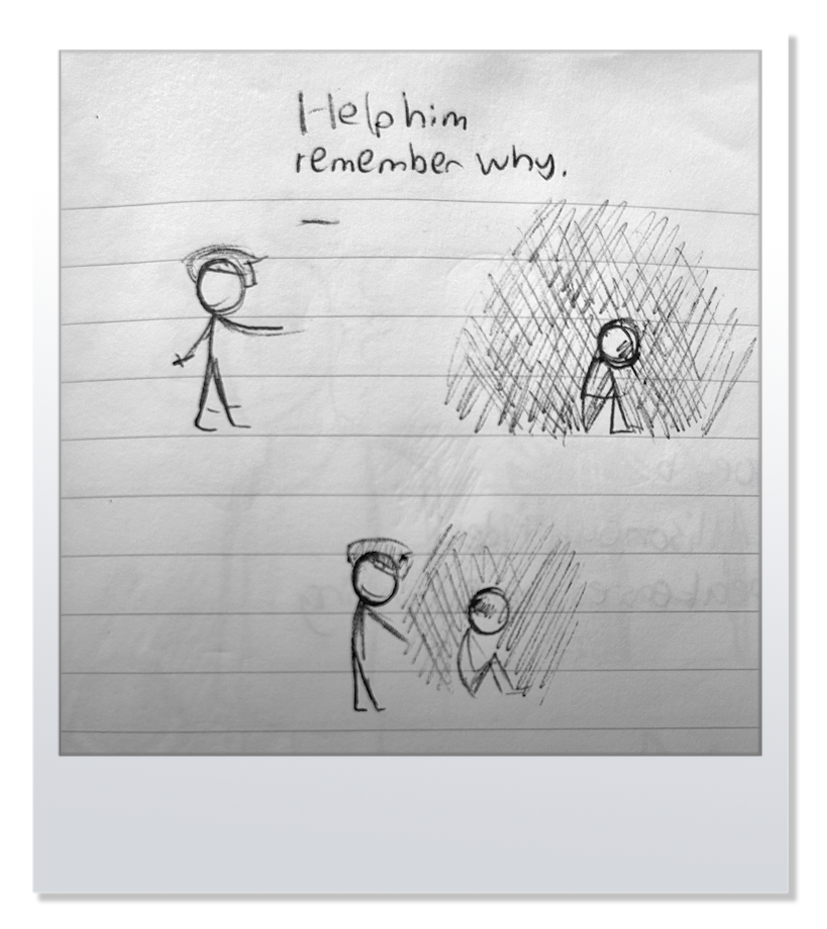 Help him
remember why.